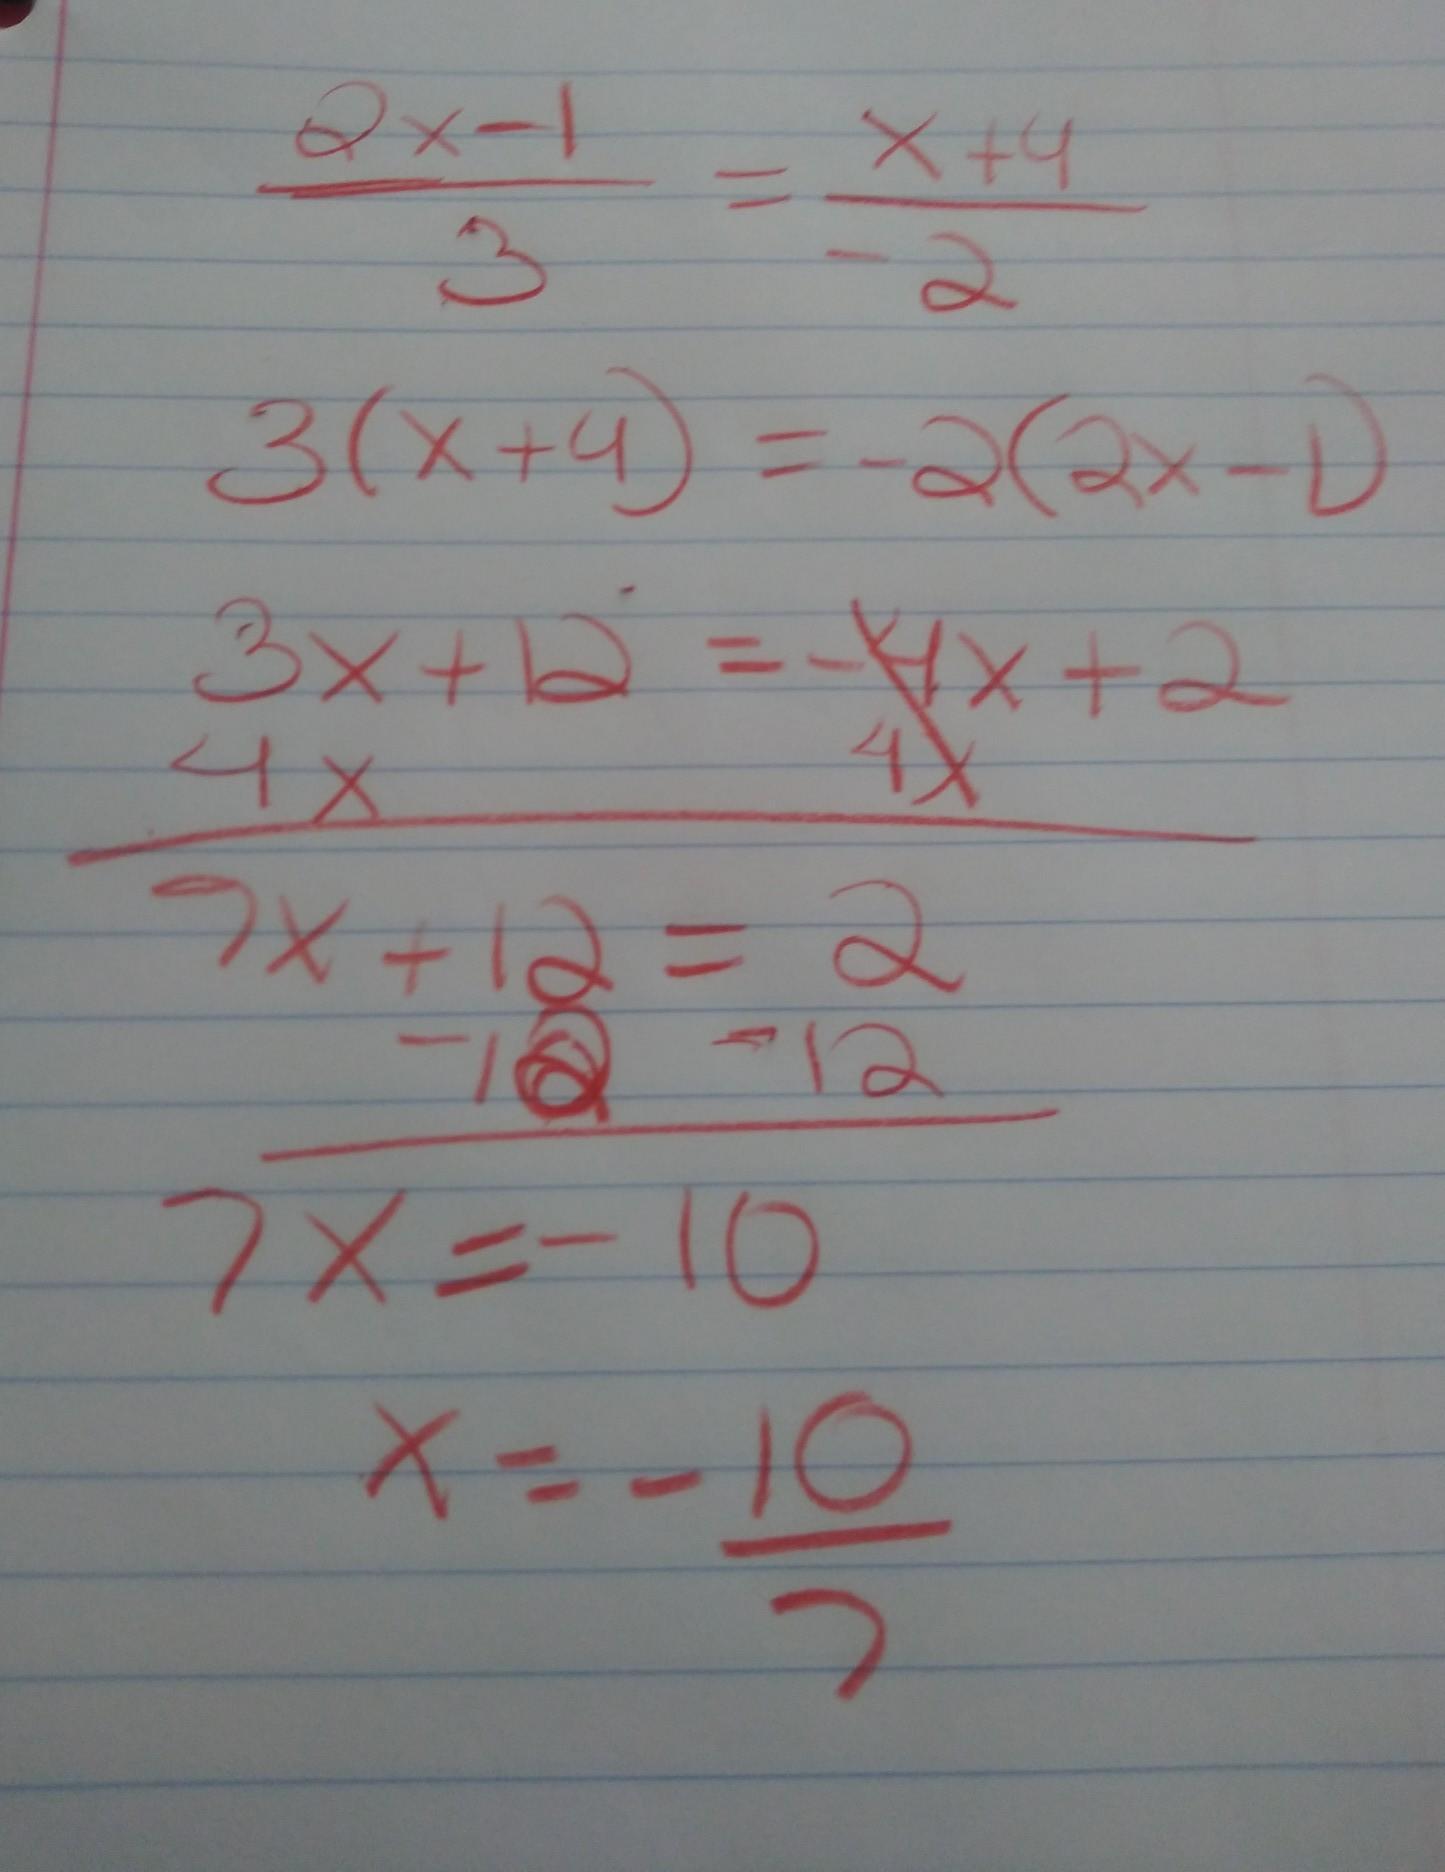 2x-1 = x+4
3 -2
3(x+4) = -2(2x-1)
3x+12 = -4x+2
4x 4x
7x+12 = 2
-12 -12
7x = -10
x = -10
7